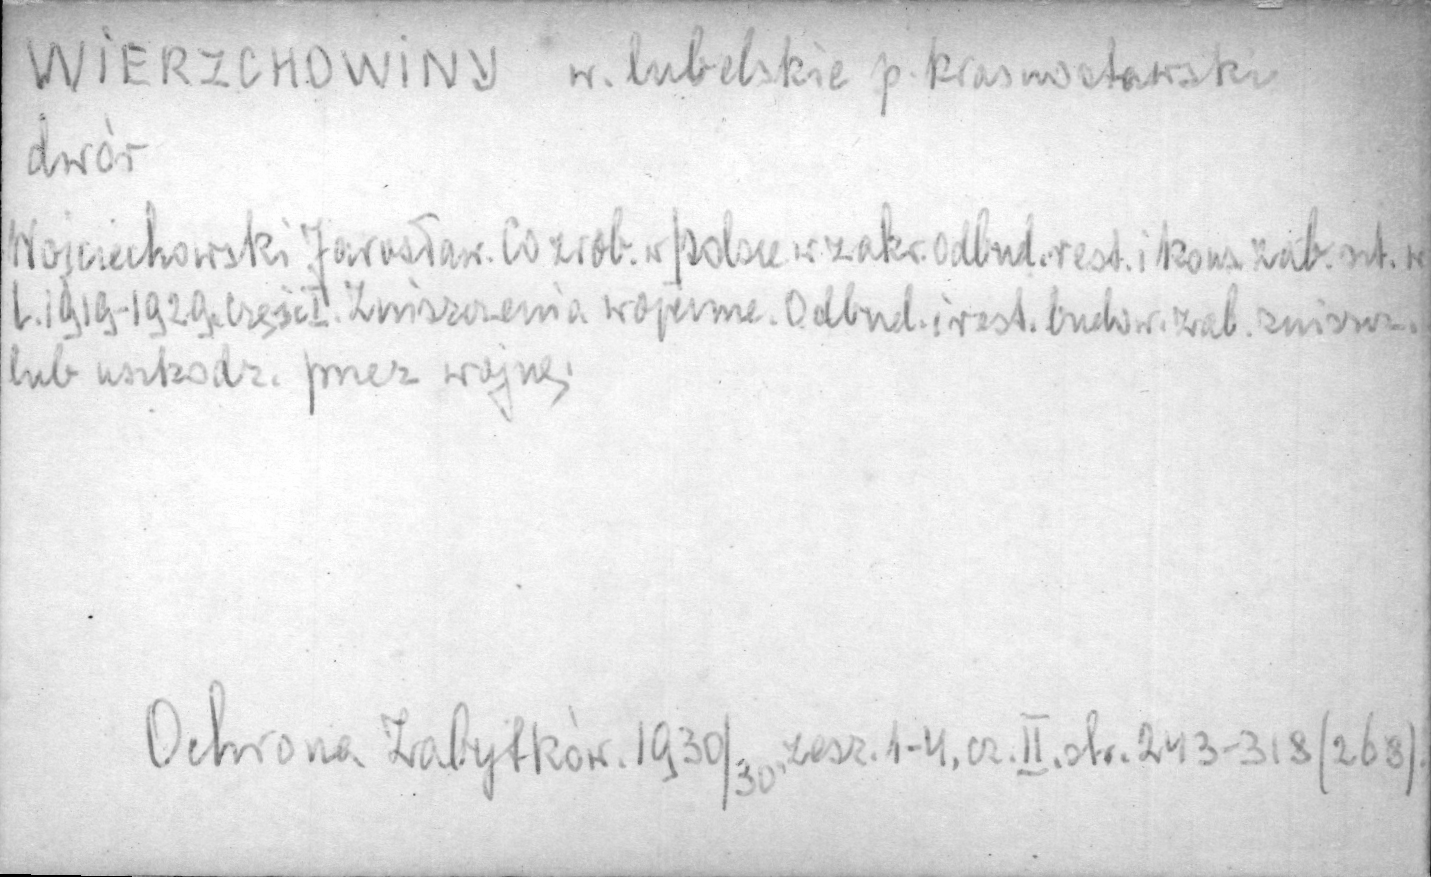 WIERZCHOWINY w. lubelskie p. krasnostawski
dwór
Wojciechowski Jarosław. Co zrob. w Polsce w zakr. odbud. rest. i kons. zab. szt. w
l. 1919-1929. Część I. Zniszczenia wojenne. Odbud. i rest. budow. zab. zniszcz.
lub uszkodz. przez wojnę.
Ochrona Zabytków. 1930/30. zesz. 1-4, cz. II. str. 243-318 (268).